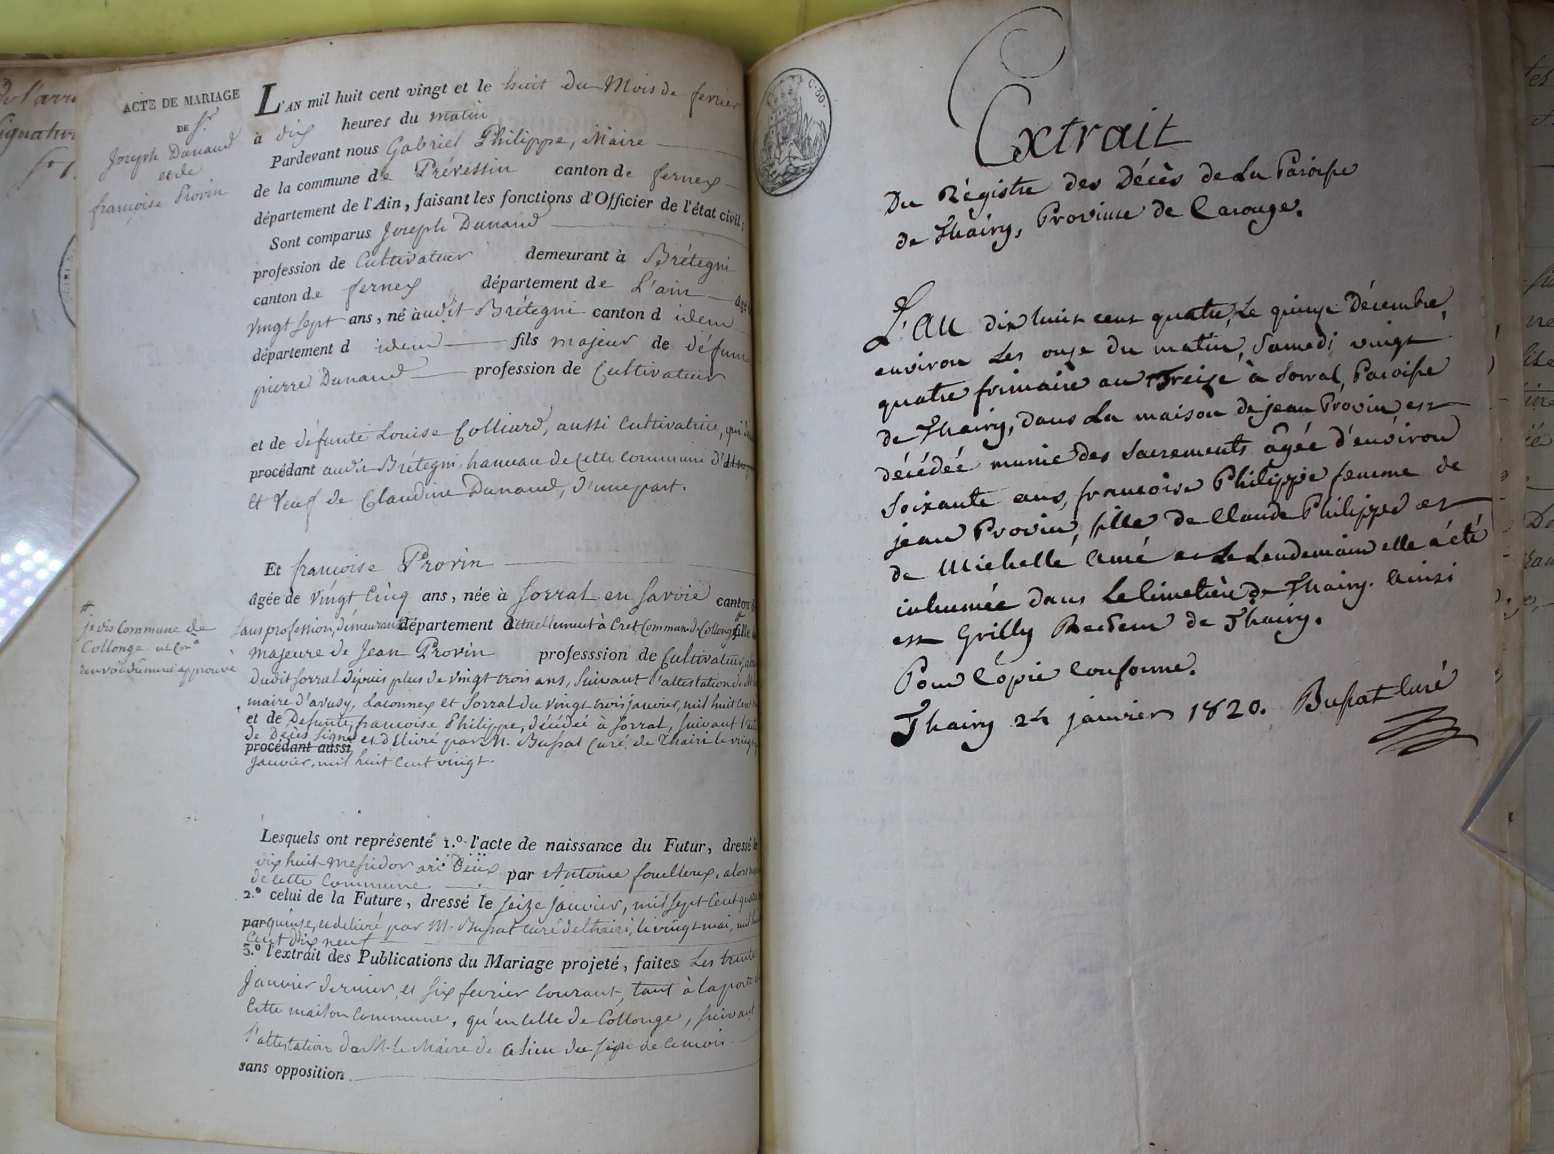 ACTE DE MARIAGE
DE Sr
Joseph Dunand
et de
françoise Provin
L'AN mil huit cent vingt et le huit du Mois de fevrier
à dix heures du matin
Pardevant nous Gabriel Philippe, Maire
de la commune de Prévessin canton de fernex
département de l'Ain, faisant les fonctions d'Officier de l'état civil;
Sont comparus Joseph Dunand
profession de Cultivateur demeurant à Brétegni
canton de fernex département de L'ain agé
vingt sept ans, né audit Brétegni canton d idem
département d idem fils majeur de défunt
pierre Dunand profession de Cultivateur
et de défunte Louise Colliard, aussi Cultivatrice,
procédant audit Brétegni hameau de Cette Commune
et Veuf de Claudine Dunand, d'une part.
Et françoise Provin
agée de Vingt Cinq ans, née à Sorral en Savoie canton
sans profession, demeurant département d actuellement à Cret Commune de Collonge fille
majeure de Jean Provin professsion de Cultivateur,
dudit Sorral depuis plus de vingt trois ans, Suivant l'attestation de
maire d'avusy, Laconnex et Sorral du vingt trois janvier, mil huit cent
et de Defunte, françoise Philippe, décédée à Sorral, suivant
de Décès signé et délivré par M. Bussat Curé de Thairi le vingt
procédant aussi
janvier, mil huit Cent vingt.
je dis Commune de
Collonge
approuvé
Lesquels ont représenté 1.º l'acte de naissance du Futur, dressé le
dix huit Messidor an Deux par Antoine fouilloux, alors
de cette Commune
2.º celui de la Future, dressé le seize janvier, mil sept Cent quatre
par quinze, et délivré par M. Bussat Curé de thairi, le vingt mai, mil
Cent dix neuf
3.º l'extrait des Publications du Mariage projeté, faites Les trente
Janvier dernier, et Six fevrier Courant, tant à la porte
Cette maison Commune, qu'en Celle de Collonge, suivant
l'attestation de M. le Maire de Ce lieu du sept de Ce mois
sans opposition
Extrait
Du Régistre des Décès de La Paroisse
de Thairy, Province de Carouge.
L'an dix huit cent quatre, Le quinze Décembre,
environ Les onze du matin, Samedi vingt
quatre frimaire an Treize à Sorral, Paroisse
de Thairy, dans La maison de jean Provin, est
décédée munie des Sacrements âgée d'environ
Soixante ans, francoise Philippe femme de
jean Provin, fille de Claude Philippe et
de Michelle Amé et Le Lendemain elle a été
inhumée dans Le Cimetière de Thairy. Ainsi
est Grilly Recteur de Thairy.
Pour Copie Conforme.
Thairy 24 janvier 1820. Bussat Curé